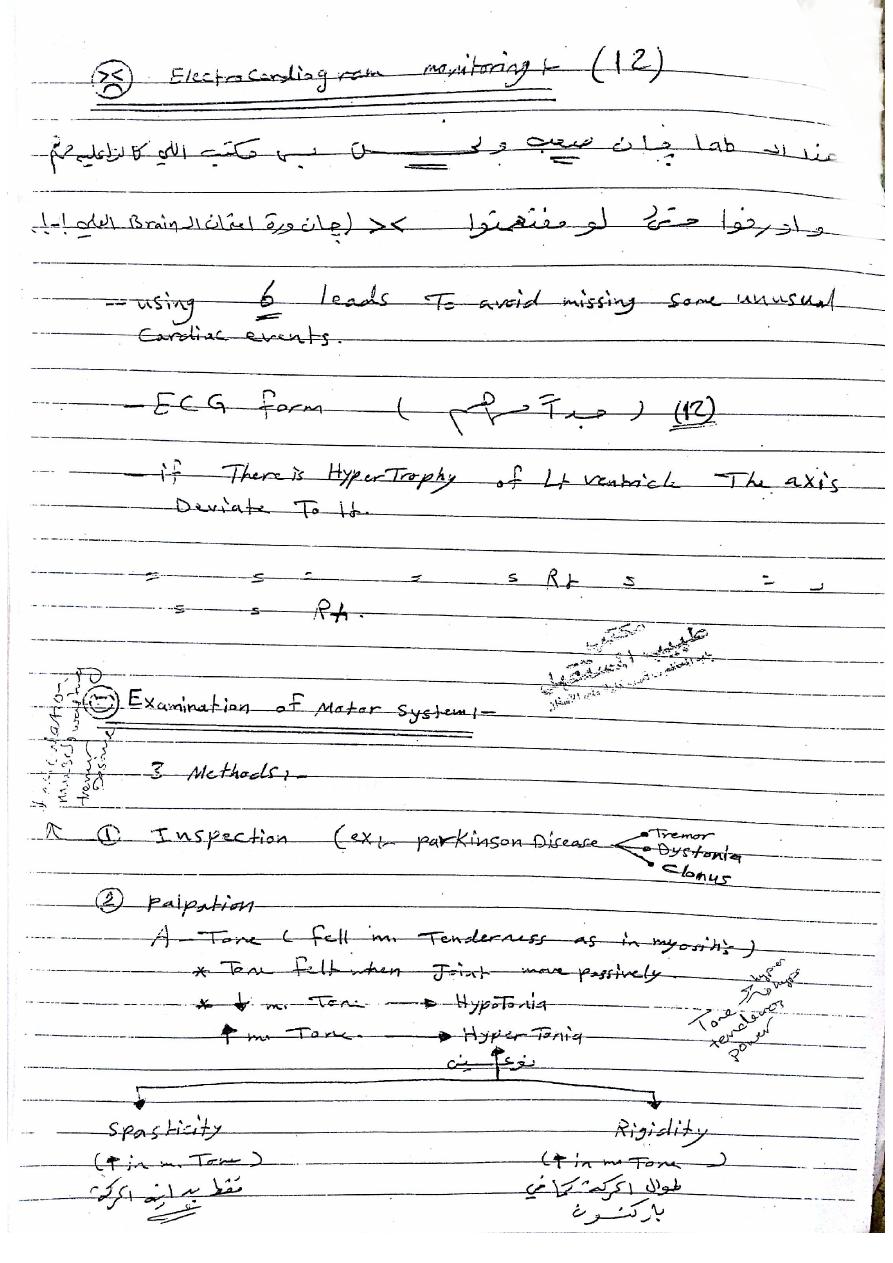 ElectroCardiagram monitoring :- (12)
عند الـ lab چان صعب ولحـــــل بس مكتب اللي
وادرفوا حتى لو مفتهمتوا >< (چان ورة امتحان الـ Brain
-- using 6 leads To avoid missing some unusual
Cardiac events.
- ECG form ( جداً مهم ) (12)
- if There is HyperTrophy of Lt ventrick The axis
Deviate To Lt.
= s = = s Rt s = د
s s Rt.
مكتب
طبيب المستقبل
Examination of Motor System :-
3 Methods :-
① Inspection (ex:- parkinson Disease
Tremor
Dystonia
Clonus
② palpation
A - Tone ( fell m. Tenderness as in myositis )
* Tone felt when Joint move passively.
* ↓ m. Tone → HypoTonia
↑ m. Tone. → HyperTonia
Tone hyper hypo
tenderness
power
نوعين
Spasticity
(↑ in m. Tone )
فقط بداية الحركة
Rigidity
(↑ in m. Tone )
طوال الحركة كما في
باركنسون